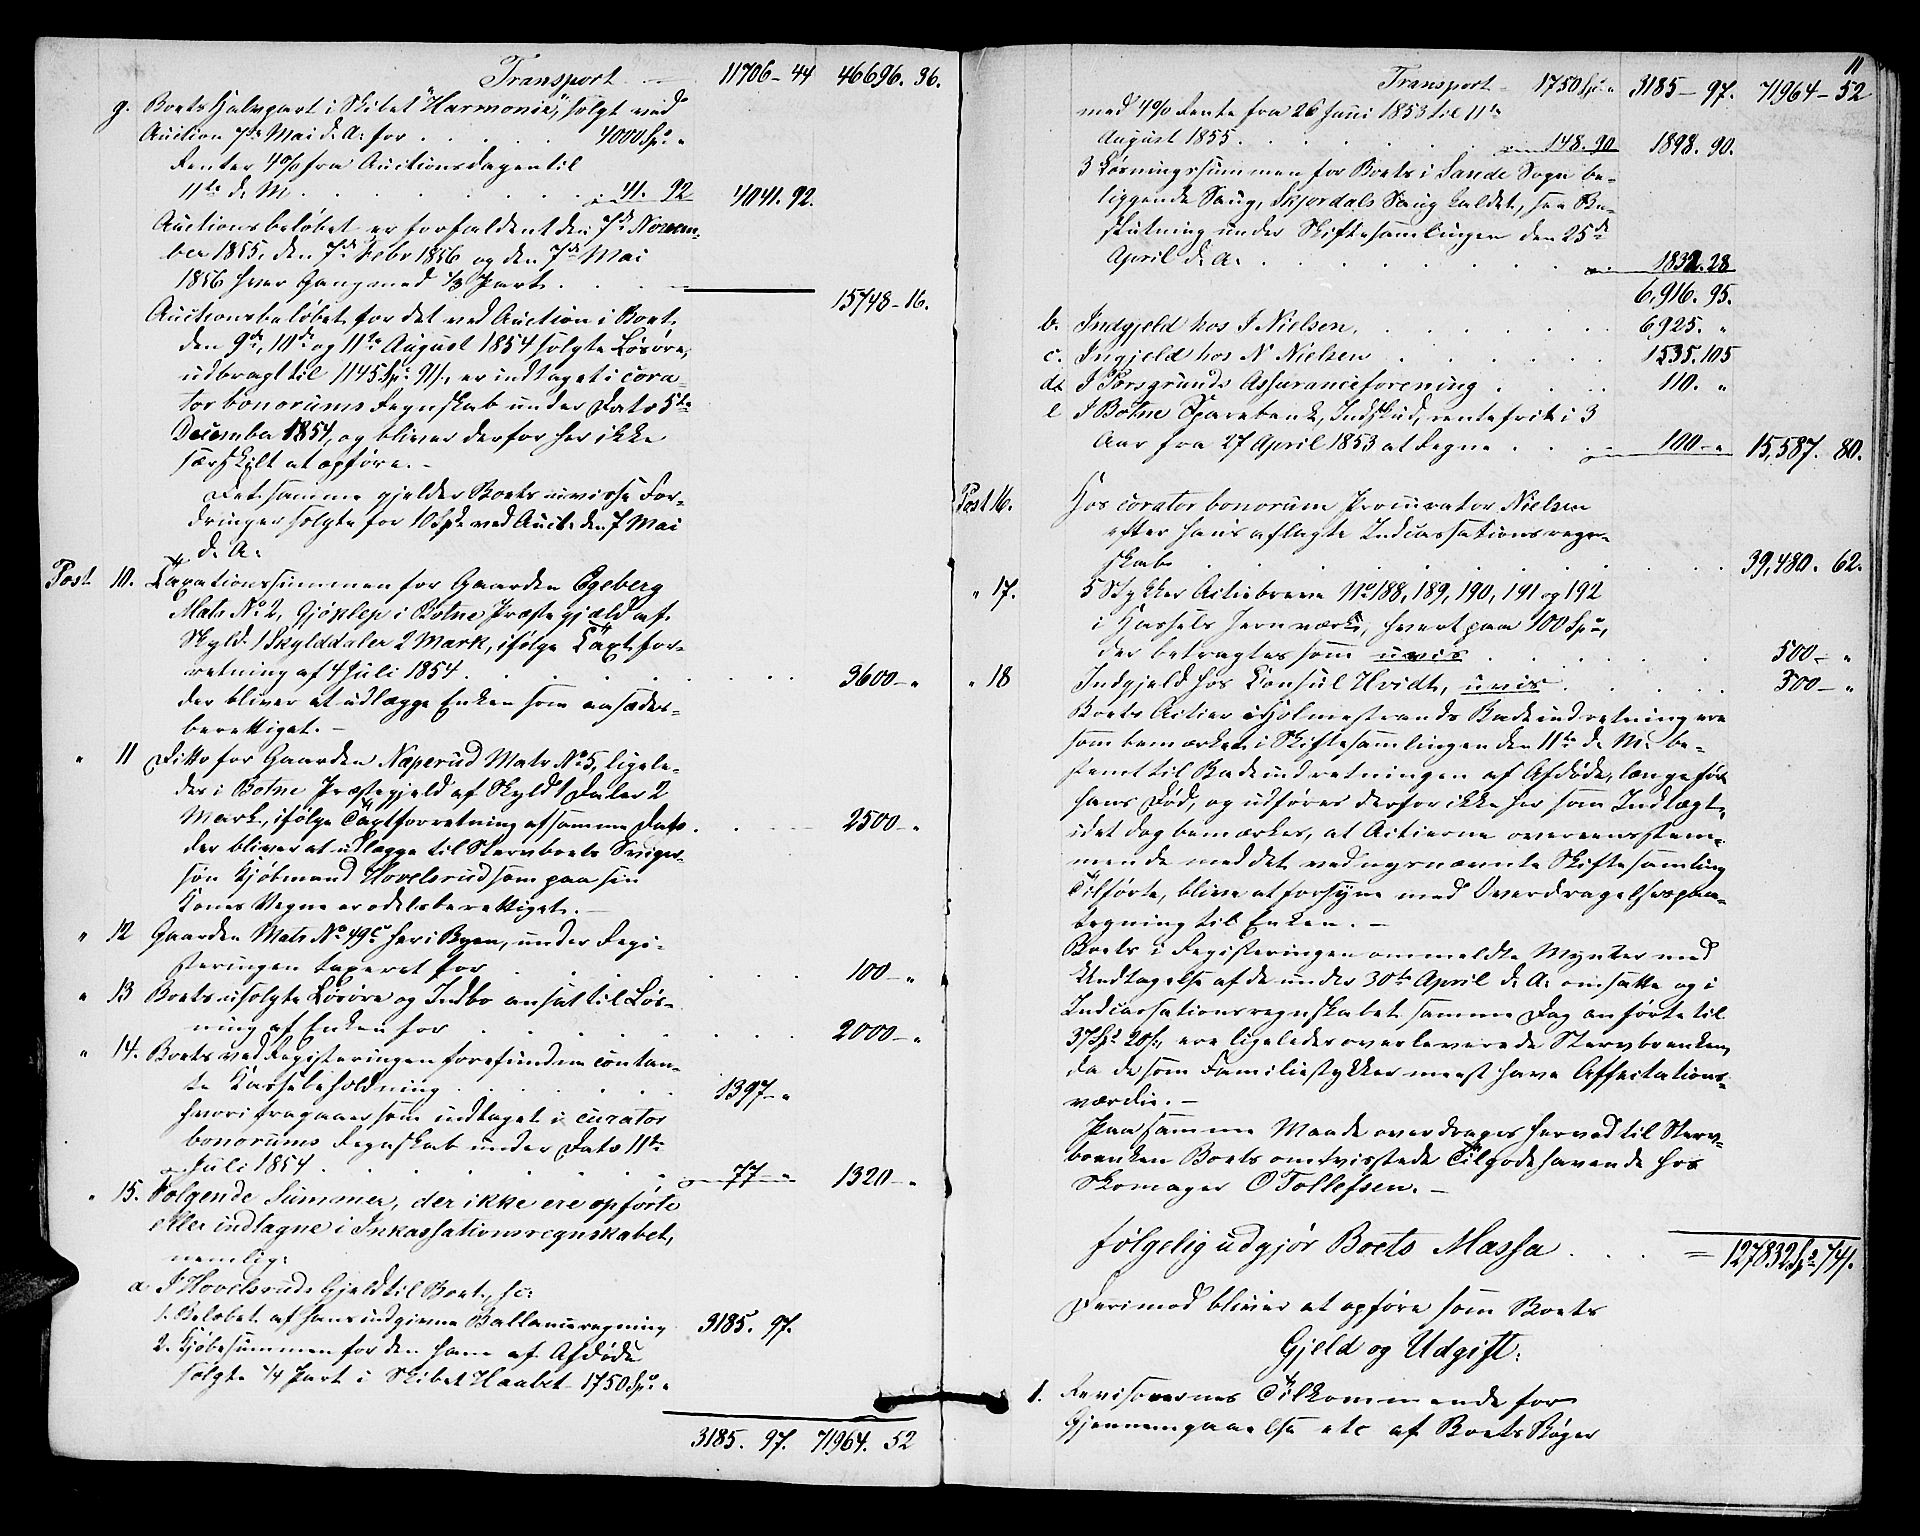 Transport — 11706-44 46696.36.
g. Boets Halvpart i Skibet "Harmonie", solgt ved
Auction 7de Mai d. A. for . . . . 4000 Spd. "
Renter 4% fra Auctionsdagen til
11te d. M. . . . . . . 41. 92 4041.92.
Auctionsbeløbet er forfaldent den 7de Novem-
ber 1855, den 7de Febr 1856 og den 7de Mai
1856 hver Gang med 1/3 Part. . . . 15748-16.
Auctionsbeløbet for det ved Auction i Boet
den 9de, 10de og 11te August 1854 solgte Løsøre,
udbragt til 1145 Spd. 91 s., er indtaget i cora-
tor bonorums Regnskab under Dato 5te
December 1854, og bliver derfor her ikke
særskilt at opføre. -
Det samme gjelder Boets uvisse For-
dringer solgte for 10 Spd. ved Auct. den 7 Mai
d. A.
Post 10. Taxationssummen for Gaarden Egeberg
Matr No. 2, i Botne Præstegjæld af
Skyld 1 Skylddaler 2 Mark, ifølge Taxtfor-
retning af 4 Juli 1854 . . . . . . 3600- "
der bliver at udlægge Enken som aasædes-
berettiget. -
" 11 Ditto for Gaarden Næperud Matr No. 5, ligele-
des i Botne Præstegjeld af Skyld 1 Daler 2
Mark, ifølge Taxtforretning af samme Dato . . . 2500- "
der bliver at udlægge til Stervboets Sviger-
søn Kjøbmand Hovelsrud som paa sin
Kones Vegne er odelsberettiget. -
" 12 Gaarden Matr No. 49c her i Byen, under Regi-
steringen taxeret for . . . . . 100- "
" 13 Boets usolgte Løsøre og Indbo ansat til Løs-
ning af Enken for . . . . . . 2000- "
" 14. Boets ved Registeringen forefundne contan-
te Kassebeholdning . . . . . 1397- "
hvori fragaaer som indtaget i curator
bonorums Regnskab under Dato 11te
Juli 1854 . . . . . . . 77- " 1320- "
" 15. Følgende Summer, der ikke ere opførte
eller indtagne i Inkassationsregnskabet,
nemlig:
a I Hovelsruds Gjeld til Boet, sc:
1. Beløbet af hans indgivne Ballanceregning 3185. 97.
2. Kjøbesummen for den ham af Afdøde
solgte 1/4 Part i Skibet Haabet - 1750 Spd. "
3185. 97. 71964. 52
11
Transport - 1750 Spd. " 3185-97. 71964-52
med 4% Rente fra 26 Juni 1853 til 11te
August 1855 . . . . . . 148. 90 1898. 90.
3 Løsningssummen for Boets i Sande Sogn be-
liggende Saug, Skjordals Saug kaldet, see Be-
slutning under Skiftesamlingen den 25de
April d. A. . . . . . . 1832. 28
6,916. 95.
b. Indgjeld hos J Nielsen . . . . . . 6925. "
c. Ingjeld hos N Nielsen . . . . . 1535. 105
d. I Porsgrunds Assuranceforening . . . . 110. "
e I Botne Sparebank, Indskud, rentefrit i 3
Aar fra 27 April 1853 at regne . . . 100- " 15,587. 80.
Post 16. Hos corator bonorum Procurator Nielsen
efter hans aflagte Indcassationsregn-
skab . . . . . . . . 39,480. 62.
" 17. 5 Stykker Actiebreve No. 188, 189, 190, 191 og 192
i Hassels Jernværk, hvert paa 100 Spd.,
der betragtes som uvis . . . . . 500- "
" 18 Indgjeld hos Consul Hvidt, uvis . . . . 300- "
Boets Actier i Holmestrands Badeindretning ere
som bemærket i Skiftesamlingen den 11te d. M. be-
stemt til Badeindretningen af Afdøde, længe før
hans Død, og udføres derfor ikke her som Indtægt,
idet dog bemærkes, at Actierne overeensstem-
mende med det ved nysnævnte Skiftesamling
Tilførte, bliver at forsyne med Overdragelsespaa-
tegning til Enken. -
Boets i Registeringen ommeldte Mynter med
Undtagelse af de under 30te April d. A. omsatte og i
Indcassationsregnskabet samme Dag anførte til
37 Spd. 20 s., ere ligeledes overleverede Stervboenken,
da de som Familiestykker meest have Affectations-
værdie. -
Paa samme Maade overdrages herved til Sterv-
boenken Boets omtvistede Tilgodehavende hos
Skomager O Tollefsen. -
følgelig udgjør Boets Massa . . . = 127832 Spd. 74 s.
Derimod bliver at opføre som Boets
Gjeld og Udgift:
1. Revisorernes Tilkommende for
Gjennemgaaelse etc af Boets Bøger